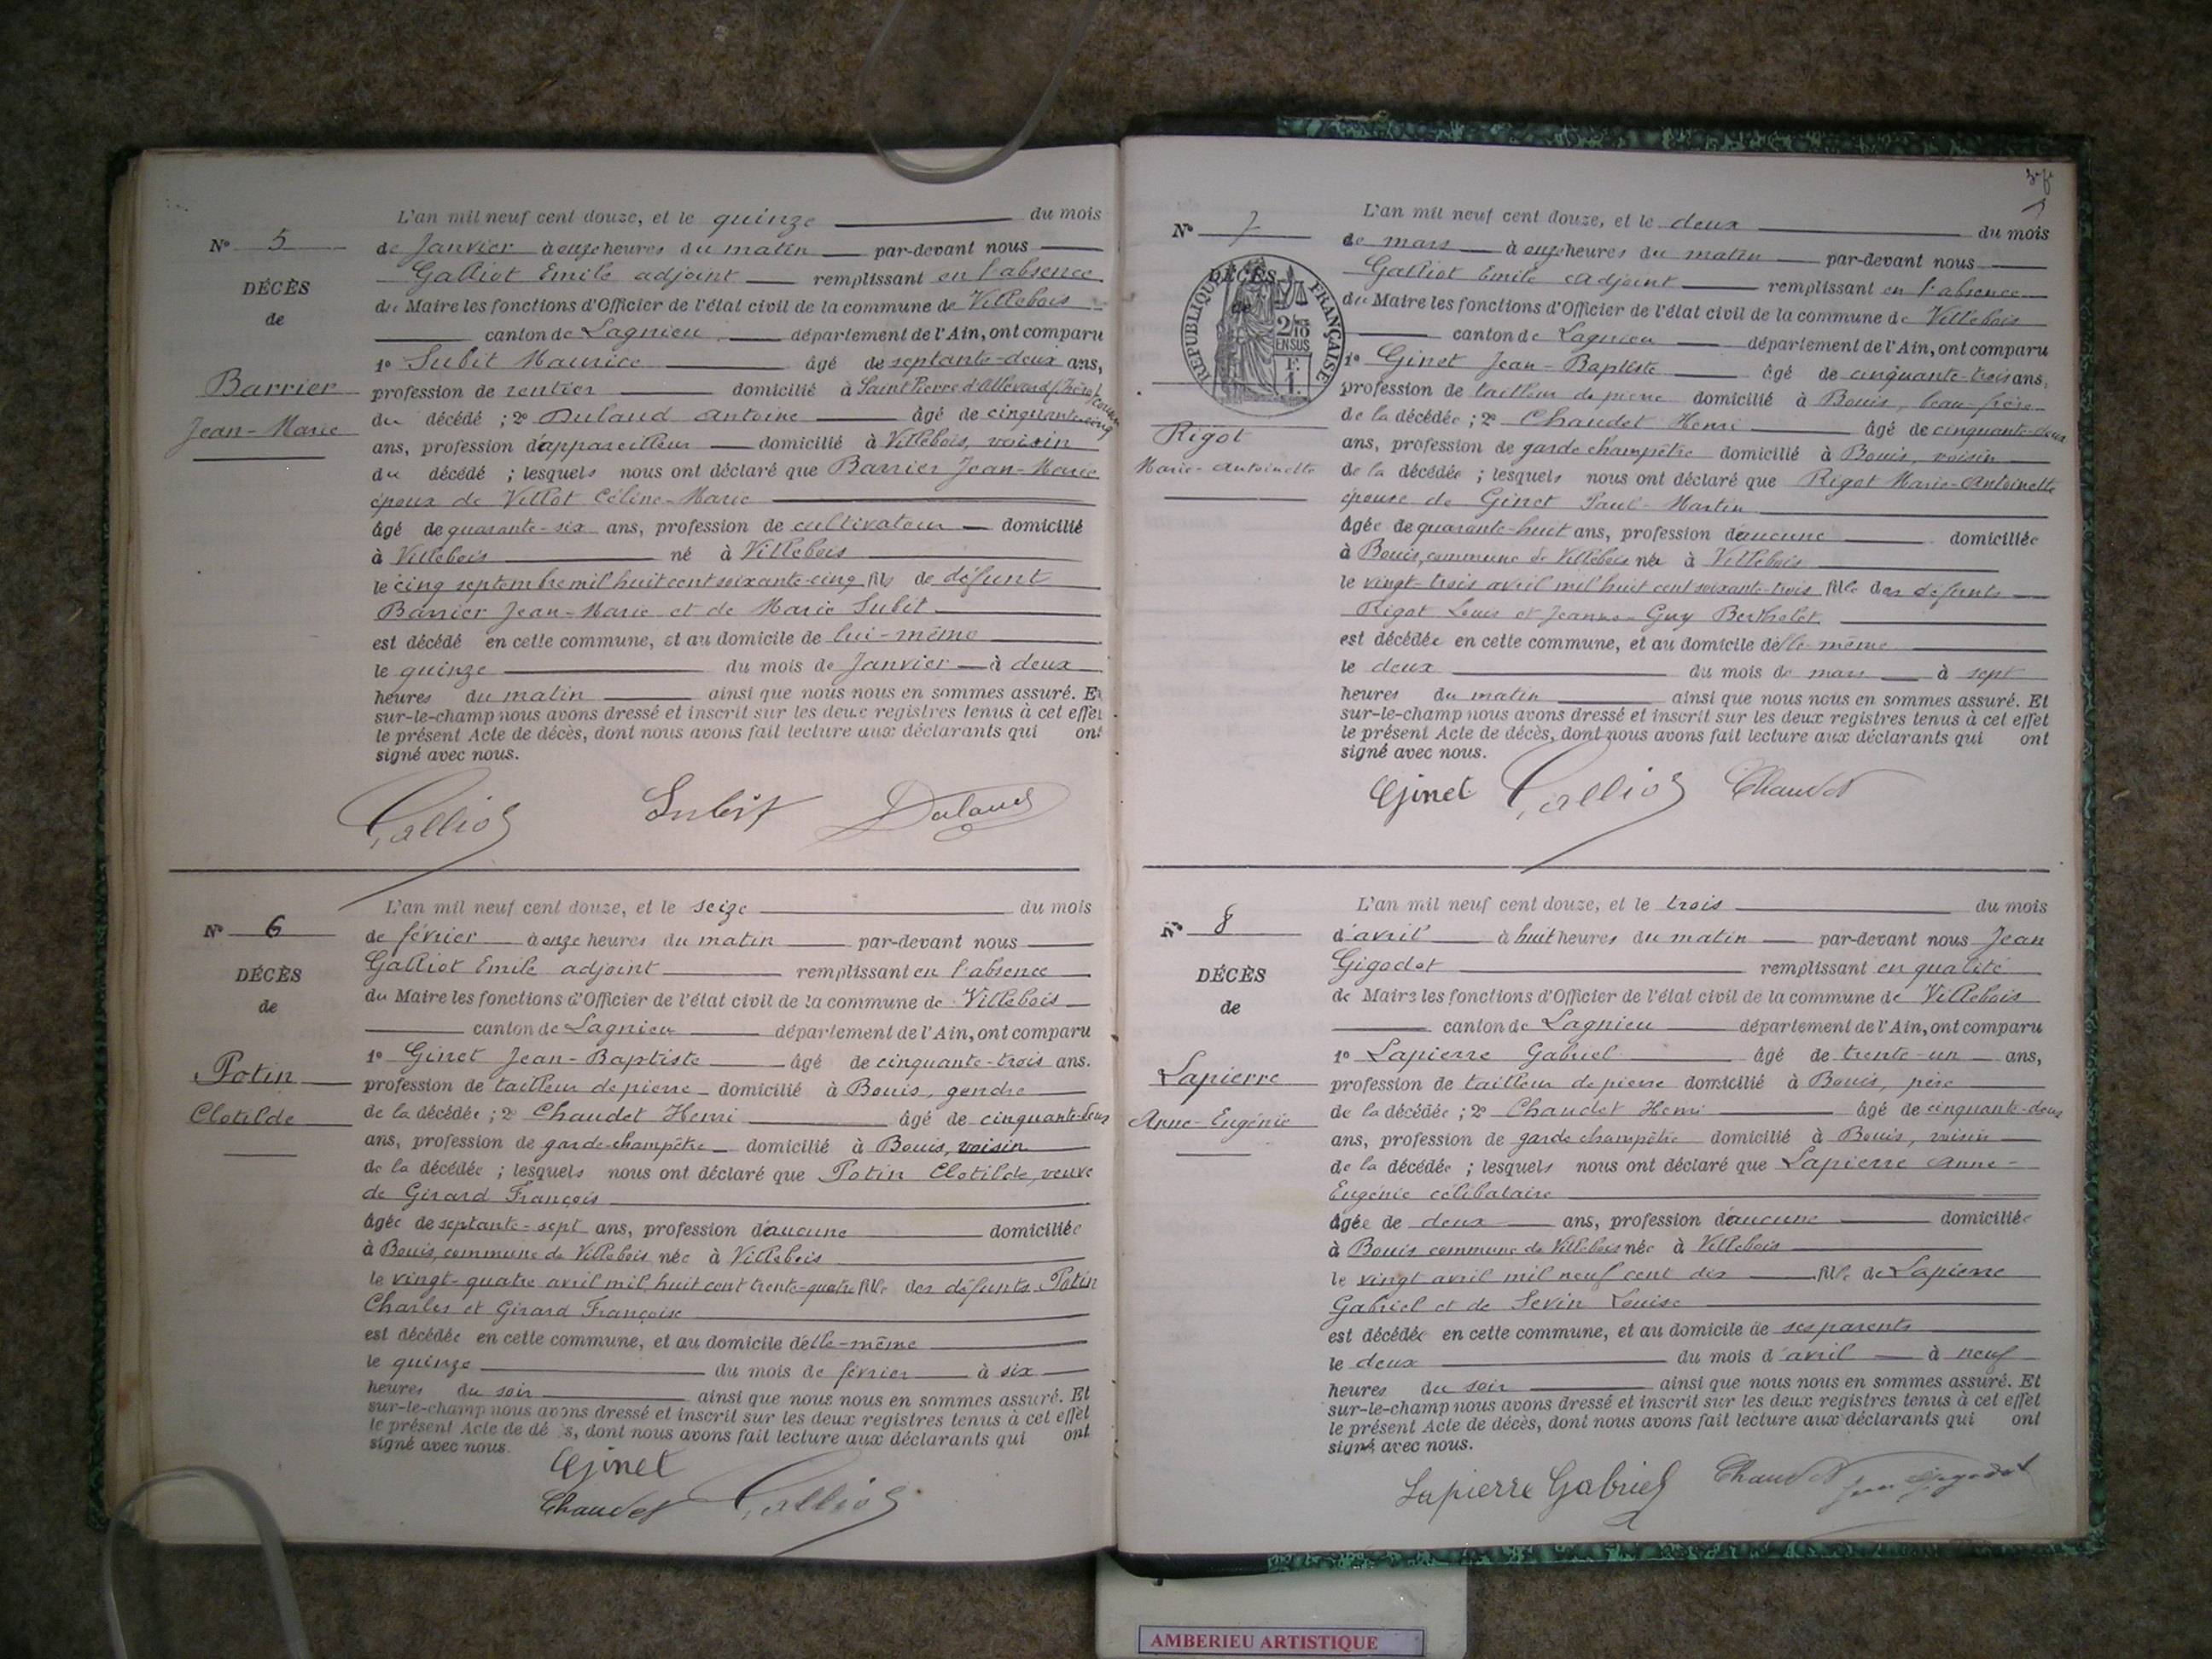 L'an mil neuf cent douze, et le quinze du mois
N° 5
de Janvier à onze heures du matin par-devant nous
Galliot Emile adjoint remplissant en l'absence
DÉCÈS
du Maire les fonctions d'Officier de l'état civil de la commune de Villebois
de
canton de Lagnieu département de l'Ain, ont comparu
1° Subit Maurice âgé de septante-deux ans,
Barrier
profession de rentier domicilié à Saint Pierre d'Allevard (Isère) cousin
du décédé ; 2° Dulaud Antoine âgé de cinquante-cinq
Jean-Marie
ans, profession d'appareilleur domicilié à Villebois, voisin
du décédé ; lesquels nous ont déclaré que Barrier Jean-Marie
époux de Villot Céline-Marie
âgé de quarante-six ans, profession de cultivateur domicilié
à Villebois né à Villebois
le cinq septembre mil huit cent soixante-cinq fils de défunt
Barrier Jean-Marie et de Marie Subit
est décédé en cette commune, et au domicile de lui-même
le quinze du mois de Janvier à deux
heures du matin ainsi que nous nous en sommes assuré. Et
sur-le-champ nous avons dressé et inscrit sur les deux registres tenus à cet effet
le présent Acte de décès, dont nous avons fait lecture aux déclarants qui ont
signé avec nous.
Galliot Subit Dulaud
L'an mil neuf cent douze, et le seize du mois
N° 6
de février à onze heures du matin par-devant nous
Galliot Emile adjoint remplissant en l'absence
DÉCÈS
du Maire les fonctions d'Officier de l'état civil de la commune de Villebois
de
canton de Lagnieu département de l'Ain, ont comparu
1° Ginet Jean-Baptiste âgé de cinquante-trois ans.
Potin
profession de tailleur de pierre domicilié à Bouis, gendre
Clotilde
de la décédée ; 2° Chaudet Henri âgé de cinquante-deux
ans, profession de garde-champêtre domicilié à Bouis, voisin
de la décédée ; lesquels nous ont déclaré que Potin Clotilde, veuve
de Girard François
âgée de septante-sept ans, profession d'aucune domiciliée
à Bouis, commune de Villebois née à Villebois
le vingt-quatre avril mil huit cent trente-quatre fille des défunts Potin
Charles et Girard Françoise
est décédée en cette commune, et au domicile d'elle-même
le quinze du mois de février à six
heures du soir ainsi que nous nous en sommes assuré. Et
sur-le-champ nous avons dressé et inscrit sur les deux registres tenus à cet effet
le présent Acte de dé s, dont nous avons fait lecture aux déclarants qui ont
signé avec nous.
Ginet
Chaudet Galliot
L'an mil neuf cent douze, et le deux du mois
N° 7
de mars à onze heures du matin par-devant nous
DÉCÈS
Galliot Emile adjoint remplissant en l'absence
de
du Maire les fonctions d'Officier de l'état civil de la commune de Villebois
RÉPUBLIQUE FRANÇAISE
2/10 EN SUS
F. 1.
canton de Lagnieu département de l'Ain, ont comparu
1° Ginet Jean-Baptiste âgé de cinquante-trois ans,
profession de tailleur de pierre domicilié à Bouis, beau-frère
de la décédée ; 2° Chaudet Henri âgé de cinquante-deux
Rigot
ans, profession de garde champêtre domicilié à Bouis, voisin
Marie-Antoinette
de la décédée ; lesquels nous ont déclaré que Rigot Marie-Antoinette
épouse de Ginet Paul-Martin
âgée de quarante-huit ans, profession d'aucune domiciliée
à Bouis, commune de Villebois née à Villebois
le vingt-trois avril mil huit cent soixante-trois fille des défunts
Rigot Louis et Jeanne Guy Berthelot
est décédée en cette commune, et au domicile d'elle-même
le deux du mois de mars à sept
heures du matin ainsi que nous nous en sommes assuré. Et
sur-le-champ nous avons dressé et inscrit sur les deux registres tenus à cet effet
le présent Acte de décès, dont nous avons fait lecture aux déclarants qui ont
signé avec nous.
Ginet Galliot Chaudet
L'an mil neuf cent douze, et le trois du mois
N° 8
d'avril à huit heures du matin par-devant nous Jean
Gigodot remplissant en qualité
DÉCÈS
de Maire les fonctions d'Officier de l'état civil de la commune de Villebois
de
canton de Lagnieu département de l'Ain, ont comparu
1° Lapierre Gabriel âgé de trente-un ans,
Lapierre
profession de tailleur de pierre domicilié à Bouis, père
Anne-Eugénie
de la décédée ; 2° Chaudet Henri âgé de cinquante-deux
ans, profession de garde champêtre domicilié à Bouis, voisin
de la décédée ; lesquels nous ont déclaré que Lapierre Anne-
Eugénie célibataire
âgée de deux ans, profession d'aucune domiciliée
à Bouis commune de Villebois née à Villebois
le vingt avril mil neuf cent dix fille de Lapierre
Gabriel et de Sevin Louise
est décédée en cette commune, et au domicile de ses parents
le deux du mois d'avril à neuf
heures du soir ainsi que nous nous en sommes assuré. Et
sur-le-champ nous avons dressé et inscrit sur les deux registres tenus à cet effet
le présent Acte de décès, dont nous avons fait lecture aux déclarants qui ont
signé avec nous.
Lapierre Gabriel Chaudet Jean Gigodot
AMBERIEU ARTISTIQUE